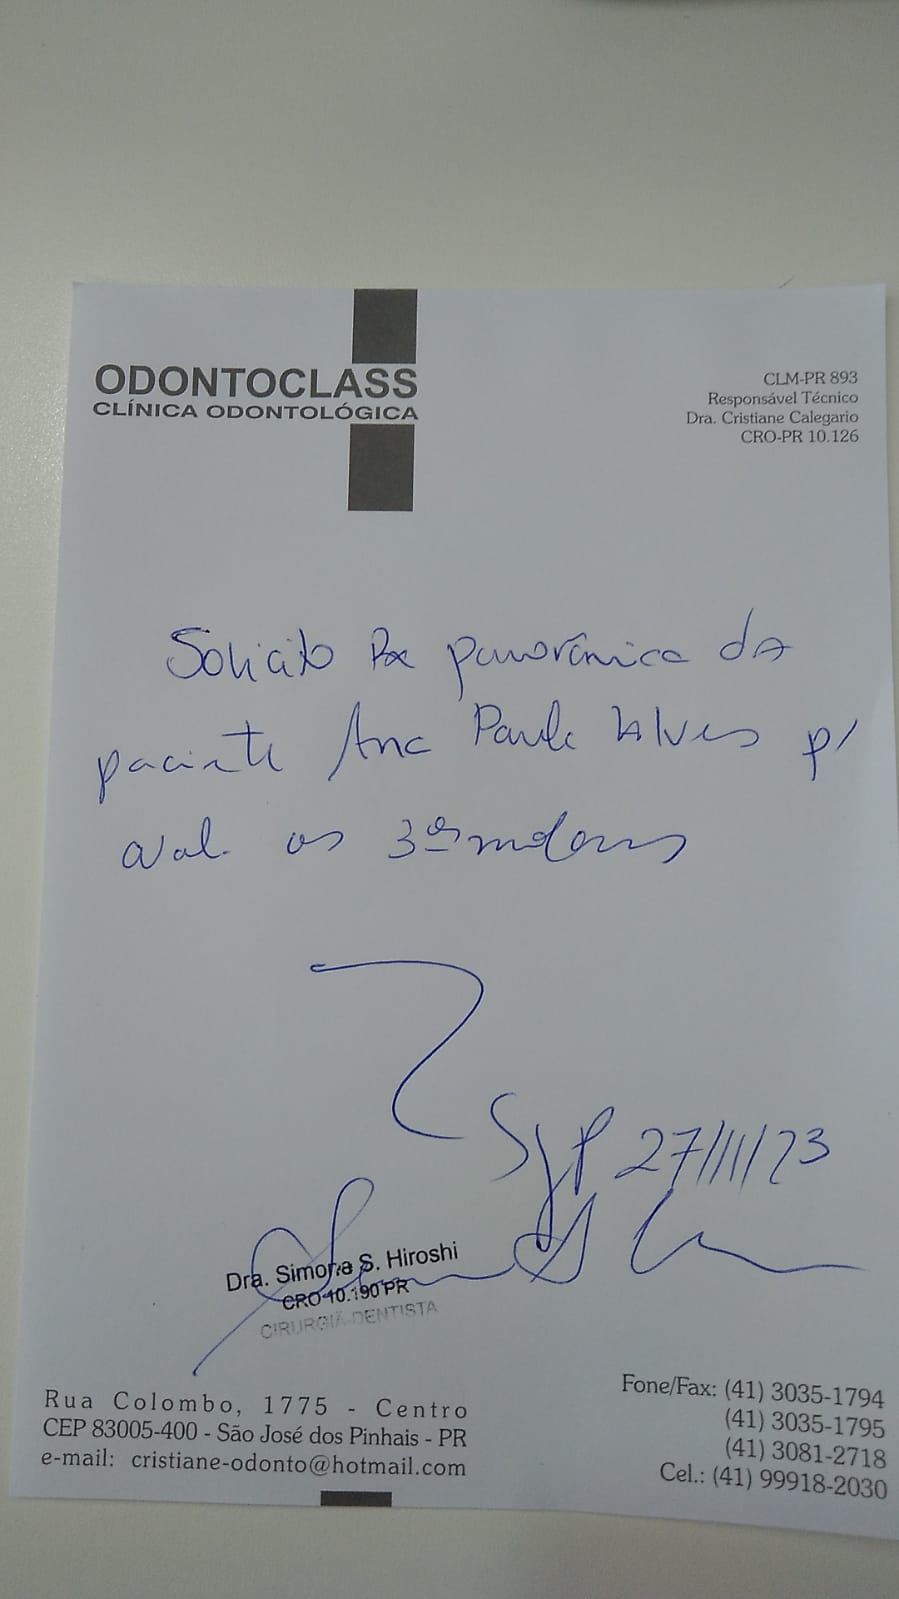 ODONTOCLASS
CLÍNICA ODONTOLÓGICA
CLM-PR 893
Responsável Técnico
Dra. Cristiane Calegario
CRO-PR 10.126
Solicito Rx panorâmica da
paciente Ana Paula Alves p/
aval. os 3ºs molares
SJP 27/11/23
Dra. Simone S. Hiroshi
CRO 10.190 PR
CIRURGIÃ-DENTISTA
Rua Colombo, 1775 - Centro
CEP 83005-400 - São José dos Pinhais - PR
e-mail: cristiane-odonto@hotmail.com
Fone/Fax: (41) 3035-1794
(41) 3035-1795
(41) 3081-2718
Cel.: (41) 99918-2030